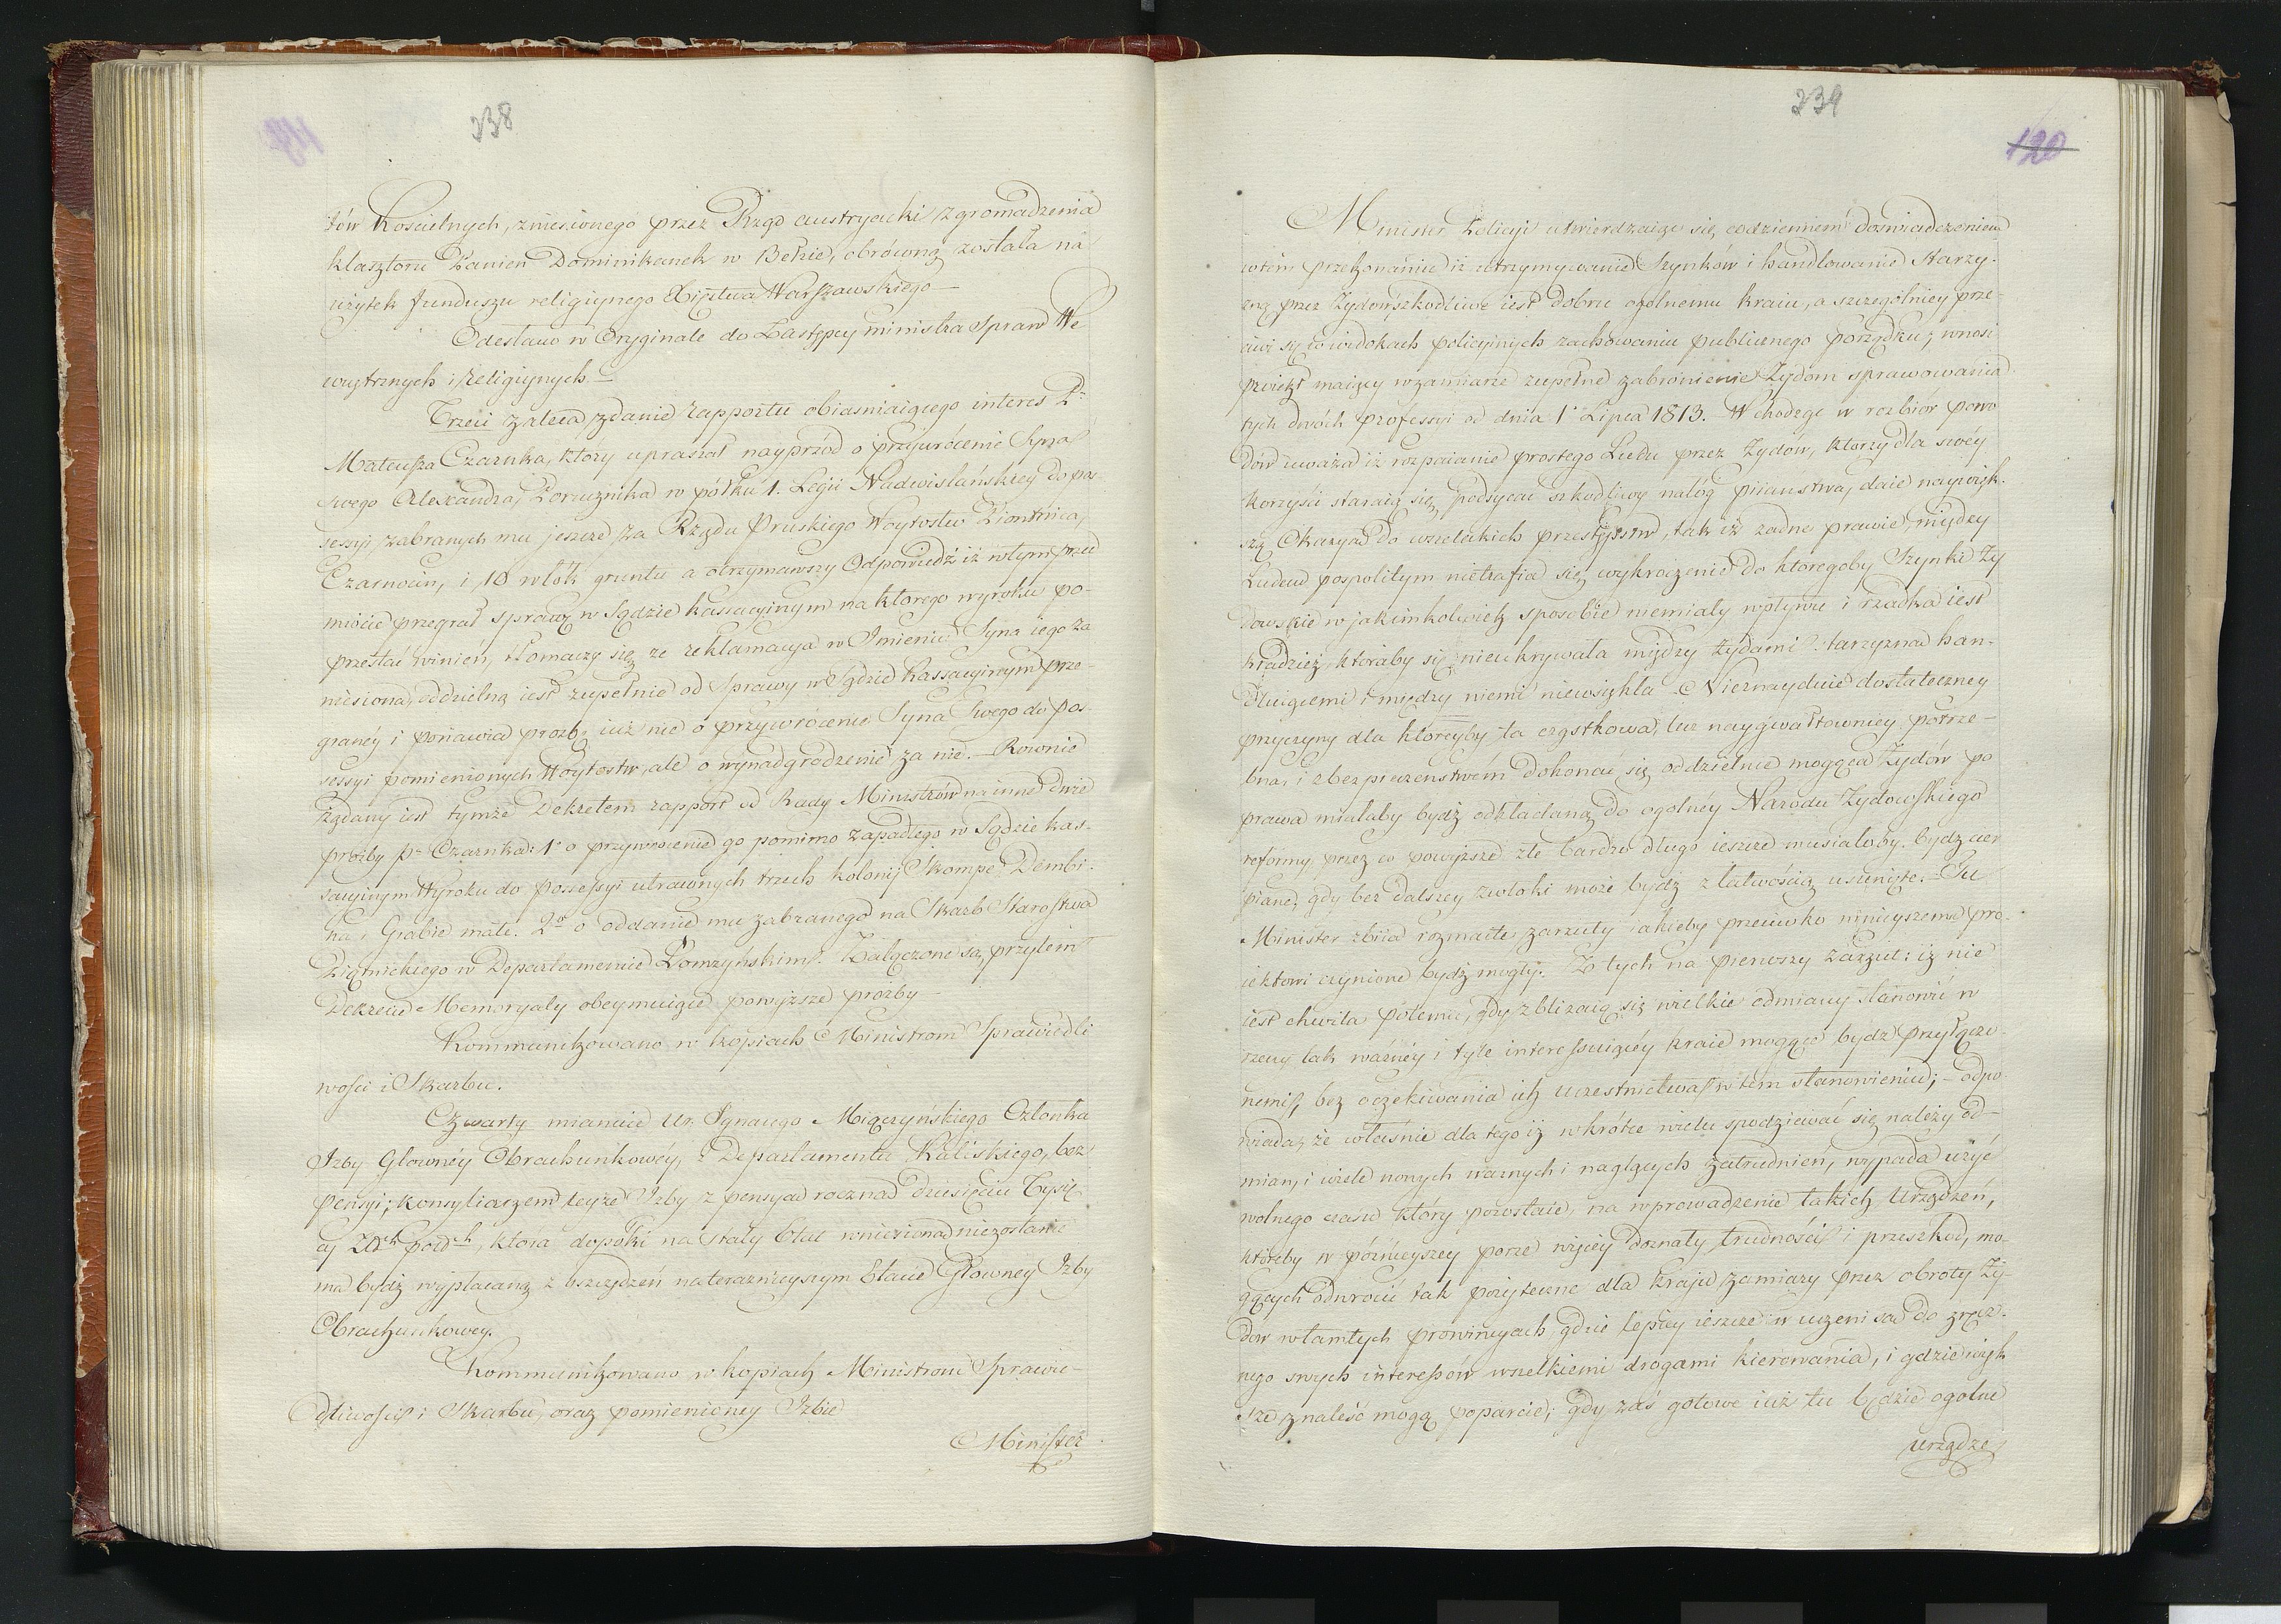 338
tów Kościelnych, zniesionego przez Rząd austryacki zgromadzenia
klasztoru Panien Dominikanek w Bełzie, obrócona została na
użytek funduszu religiynego Xięstwa Warszawskiego —
Odesłano w Oryginale do Zastępcy ministra Spraw We
wnętrznych i Religiynych. —
Trzeci zaleca zdanie rapportu obiaśniaiącego interes Pa
Mateusza Czarnka, który upraszał nayprzód o przywrócenie Syna
swego Alexandra, Porucznika w półku 1. Legii Nadwiślańskiey do pos-
sessyi zabranych mu jeszcze za Rządu Pruskiego Woytostw Piontnica,
Czarnocin, i 10 włók gruntu a otrzymawszy Odpowiedź iż w tym przed
miocie przegrał sprawę w Sądzie kassacyinym na ktorego wyroku po-
przestać winien, tłomaczy się ze reklamacya w Imieniu Syna iego za
niesiona, oddzielną iest zupełnie od Sprawy w Sądzie Kassacyinym prze-
graney i ponawia prozbę iuż nie o przywrócenie Syna Swego do pos-
sessyi pomienionych Woytostw, ale o wynadgrodzenie za nie. — Rownie
żądany iest tymże Dekretem rapport od Rady Ministrów na inne dwie
prozby Pa Czarnka: 1° o przywrocenie go pomimo zapadłego w Sądzie kas-
sacyinym Wyroku do possessyi utraconych trzech kolonij Skompe, Dembi-
na, Grabie małe. 2do o oddanie mu zabranego na Skarb Starostwa
Piątnickiego w Departamencie Łomzyńskim. Załączone są przytem
Dekrecie Memoryały obeymuiące powyzsze prozby —
Kommunikowano w kopiach Ministrom Sprawiedli
wości i Skarbu.
Czwarty mianuie Ur. Ignacego Miączyńskiego Członka
Izby Głowney Obrachunkowey, z Departamentu Kaliskiego, bez
pensyi; konsyliarzem teyże Izby z pensyą roczną dziesięciu Tysię
cy Złch polch, która dopóki na stały Etat wniesioną niezostanie
ma bydź wypłacaną z oszczędzeń na teraznieyszym Etacie Głowney Izby
Obrachunkowey.
Kommunikowano w kopiach Ministrowi Sprawie-
dliwości i Skarbu, oraz pomienioney Izbie
Minister
339
120
Minister Policyi utwierdzaiąc się codziennem doświadczeniem
w tem przekonaniu iż utrzymywanie Szynków i handlowanie Starzy-
zną przez Zydow, szkodliwe iest dobru ogólnemu kraiu, a szczególniey prze-
ciwi się w widokach policyinych zachowaniu publicznego porządku; wnosi
proiekt maiący w zamiarze zupełne zabronienie Żydom sprawowania
tych dwóch professyi od dnia 1° Lipca 1813. — Wchodząc w rozbiór powo
dów uważa iż rozpaianie prostego Ludu przez Zydów, ktorzy dla swéy
korzyści staraią się podsycać szkodliwy nałóg piiaństwa, daie naywięk-
szą Okazyą do wszelakich przestępstw, tak iż zadne prawie między
Ludem pospolitym nietrafia się wykroczenie do ktoregoby Szynki Zy
dowskie w jakimkolwiek sposobie niemiały wpływu i rzadka iest
kradzież, ktoraby się nieukrywała między Zydami Starzyzną han-
dluiącemi i między niemi niewsiąkła. — Nieznayduie dostateczney
przyczyny dla ktoreyby ta cząstkowa, lecz naygwałtowniey potrze-
bna, i z bezpieczenstwem dokonać się oddzielnie mogąca Zydów po
prawa miałaby bydź odkładaną do ogolnéy Narodu Zydowskiego
reformy, przez co powyzsze złe bardzo długo ieszcze musiałoby bydź cier
piane, gdy bez dalszey zwłoki może bydź z łatwością usunięte. — Tu
Minister zbiia rozmaite zarzuty iakieby przeciwko ninieyszemu pro-
iektowi czynione bydź mogły. Z tych na pierwszy zarzut: iż nie
iest chwila potemu, gdy zbliżaią się wielkie odmiany stanowić w
rzeczy tak ważnéy i tyle interessuiącéy kraie mogące bydź przyłączo-
nemi, bez oczekiwania ich uczestnictwa w tém stanowieniu; — odpo
wiada, że właśnie dla tego iż wkrótce wielu spodziewać się należy od-
mian, i wiele nowych ważnych i naglących zatrudnień, wypada użyć
wolnego czasu który pozostaie, na wprowadzenie takich Urządzeń,
któreby w póznieyszey porze więcey doznały trudności i przeszkod, mo-
gących odwrócić tak pożyteczne dla kraju zamiary przez obroty Zy-
dow w tamtych prowincyach, gdzie lepiey ieszcze wuczeni są do zręcz-
nego swych interessów wszelkiemi drogami kierowania, i gdzie więk
sze znaleść mogą poparcie; gdy zaś gotowe iuż tu będzie ogolne
urządze